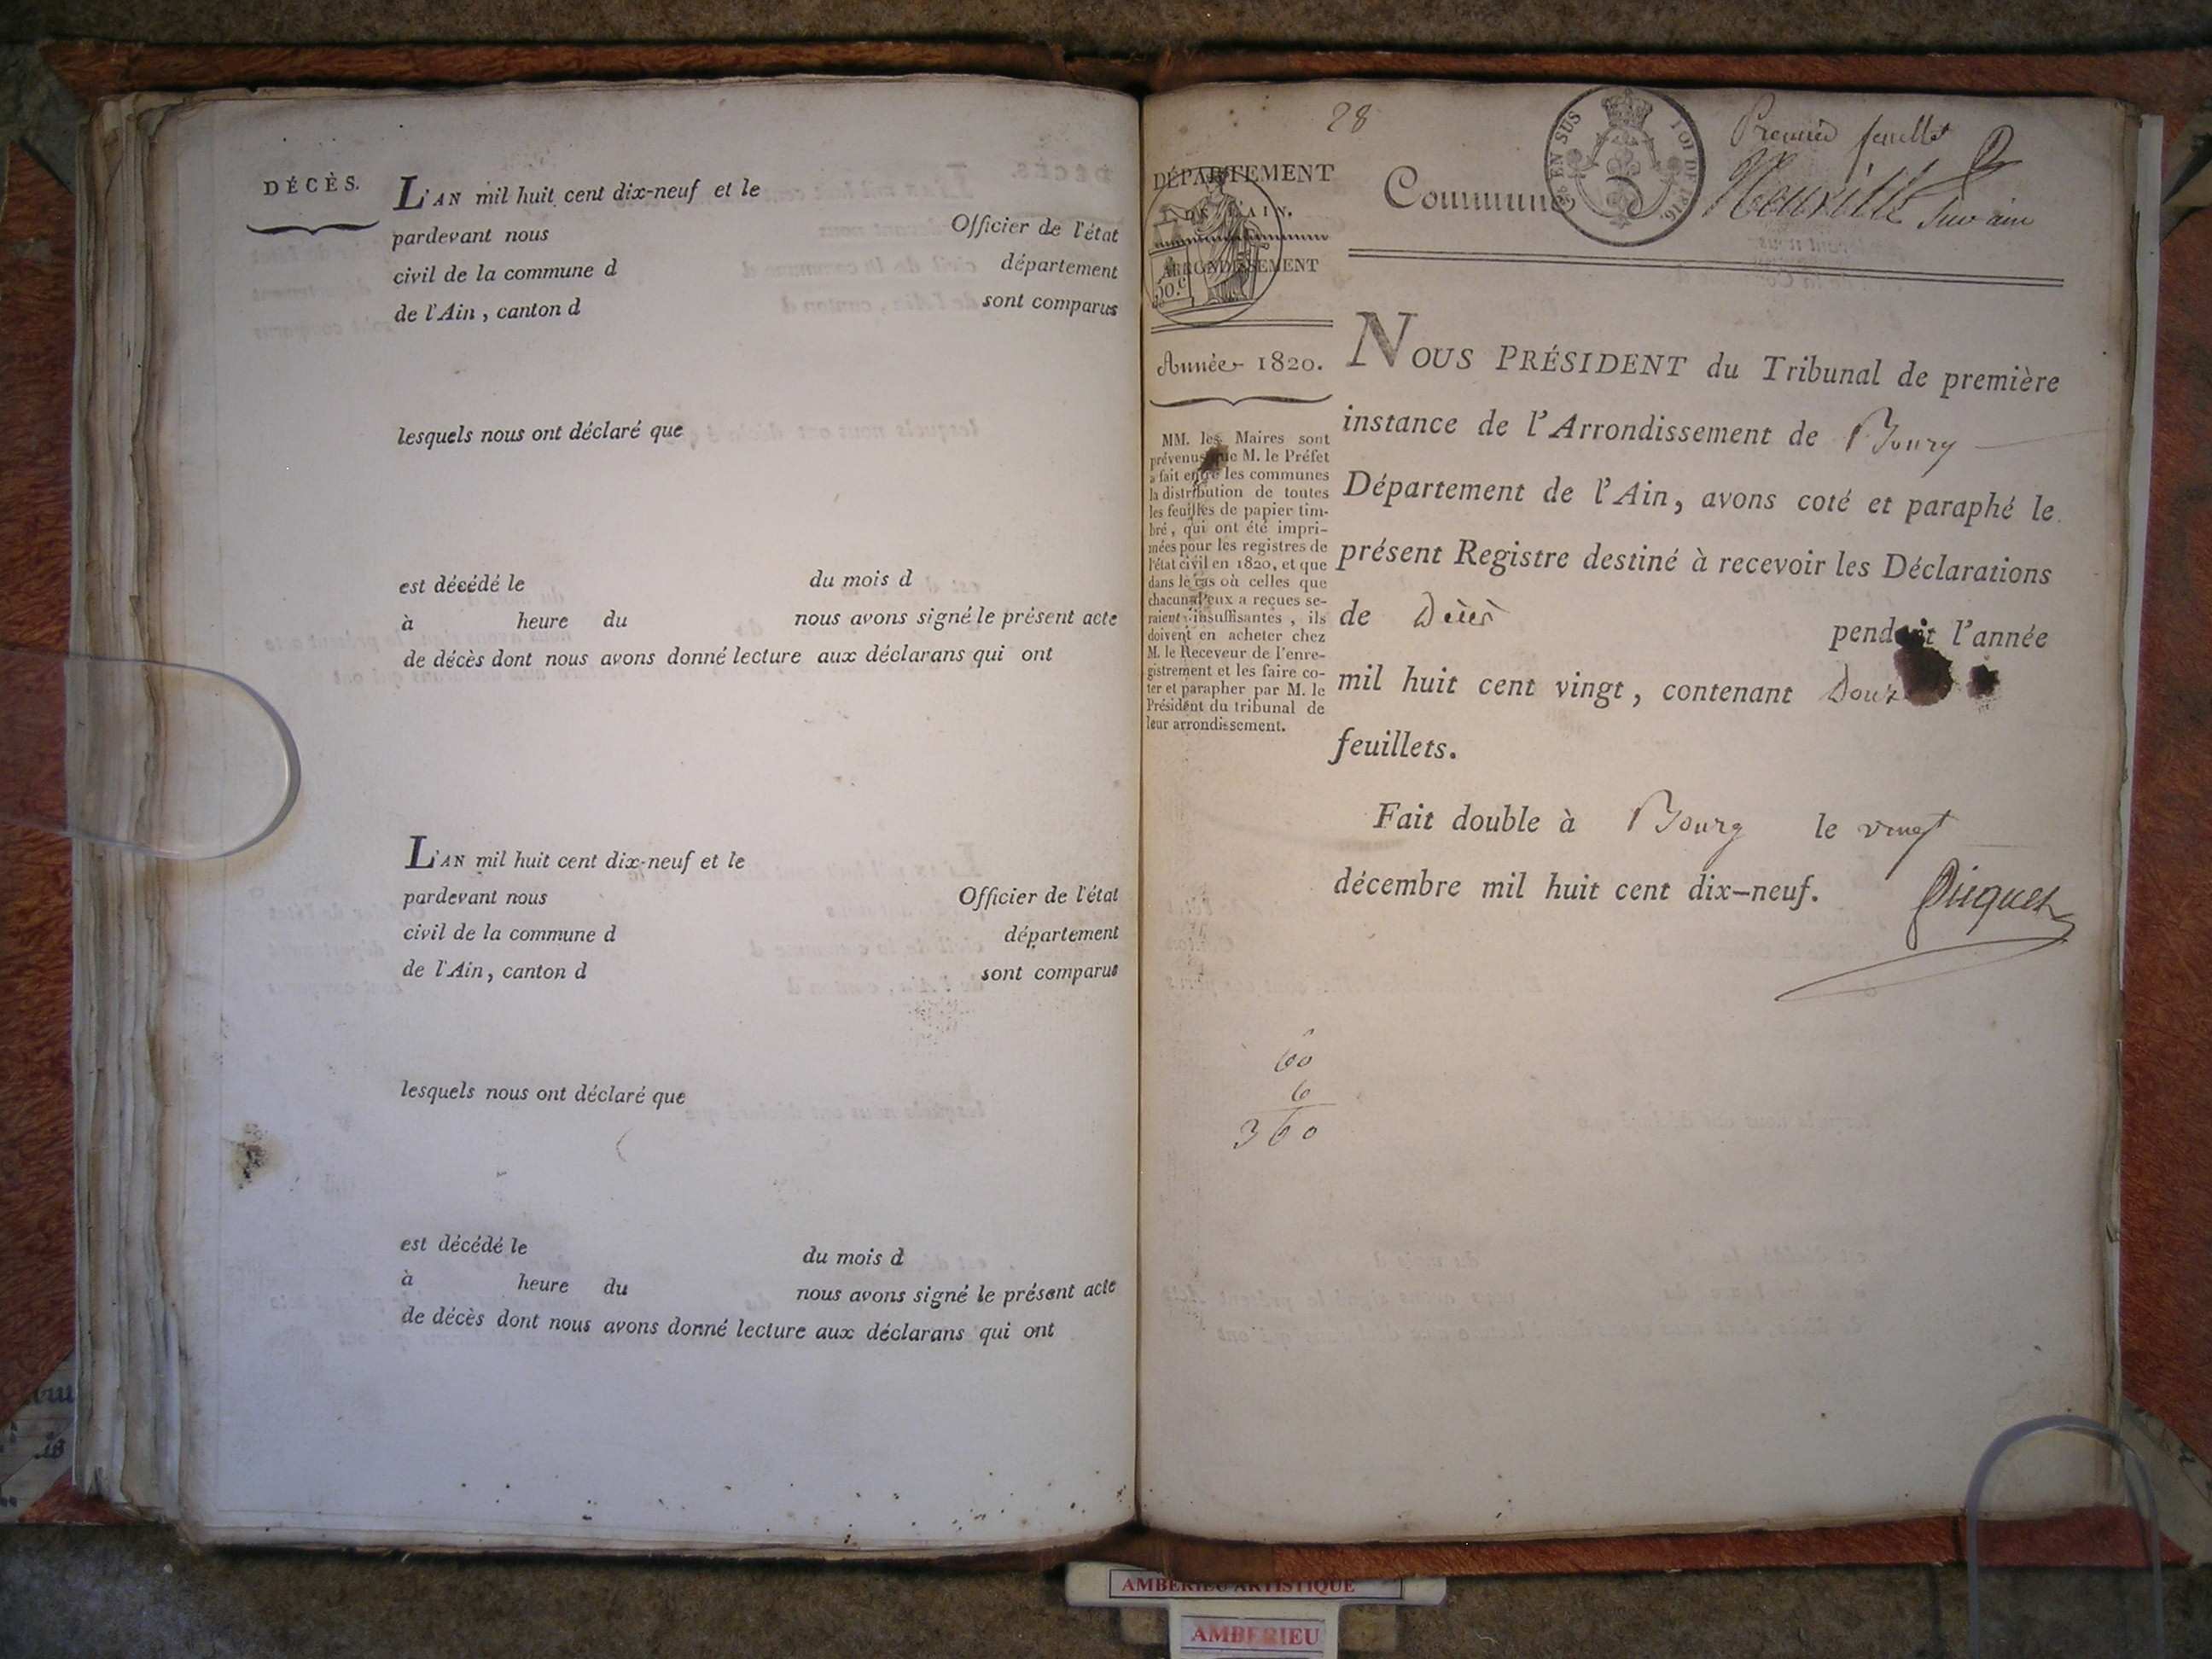 DÉCÈS.
L'AN mil huit cent dix-neuf et le
pardevant nous Officier de l'état
civil de la commune d département
de l'Ain, canton d sont comparus
lesquels nous ont déclaré que
est décédé le du mois d
à heure du nous avons signé le présent acte
de décès dont nous avons donné lecture aux déclarans qui ont
L'AN mil huit cent dix-neuf et le
pardevant nous Officier de l'état
civil de la commune d département
de l'Ain, canton d sont comparus
lesquels nous ont déclaré que
est décédé le du mois d
à heure du nous avons signé le présent acte
de décès dont nous avons donné lecture aux déclarans qui ont
28
Premier feuillet
EN SUS LOI DE 1816.
Commune Neuville sur ain
DÉPARTEMENT
DE L'AIN.
ARRONDISSEMENT
50.c
Année 1820.
MM. les Maires sont
prévenus que M. le Préfet
a fait entre les communes
la distribution de toutes
les feuilles de papier tim-
bré, qui ont été impri-
mées pour les registres de
l'état civil en 1820, et que
dans le cas où celles que
chacun d'eux a reçues se-
raient insuffisantes, ils
doivent en acheter chez
M. le Receveur de l'enre-
gistrement et les faire co-
ter et parapher par M. le
Président du tribunal de
leur arrondissement.
NOUS PRÉSIDENT du Tribunal de première
instance de l'Arrondissement de Bourg
Département de l'Ain, avons coté et paraphé le
présent Registre destiné à recevoir les Déclarations
de Décès pendant l'année
mil huit cent vingt, contenant Douz
feuillets.
Fait double à Bourg le vingt
décembre mil huit cent dix-neuf.
60
6
360
AMBERIEU ARTISTIQUE
AMBERIEU